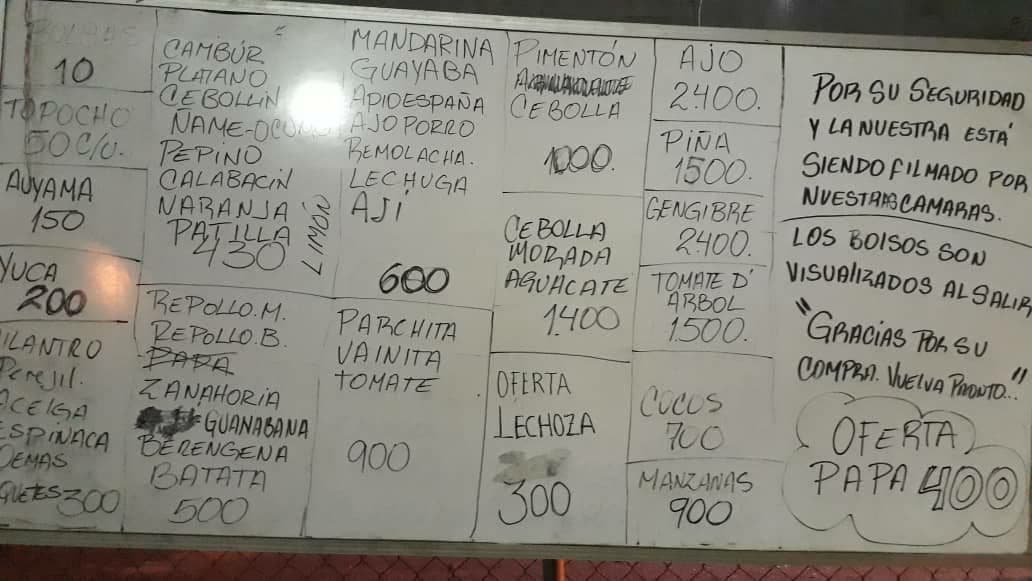 BOLSAS
10
TOPOCHO
50 C/U.
AUYAMA
150
YUCA
200
CILANTRO
PEREJIL.
ACELGA
ESPINACA
DEMAS
300
CAMBÚR
PLATANO
CEBOLLIN
ÑAME-OCUMO
PEPINO
CALABACIN
NARANJA
PATILLA
430
LIMÓN
REPOLLO.M.
REPOLLO.B.
PAPA
ZANAHORIA
GUANABANA
BERENGENA
BATATA
500
MANDARINA
GUAYABA
APIOESPAÑA
AJOPORRO
REMOLACHA.
LECHUGA
AJÍ
600
PARCHITA
VAINITA
TOMATE
900
PIMENTÓN
CEBOLLA
1000.
CEBOLLA
MORADA
AGUACATE
1.400
OFERTA
LECHOZA
300
AJO
2.400.
PIÑA
1500.
GENGIBRE
2.400.
TOMATE D'
ARBOL
1.500.
COCOS
700
MANZANAS
900
POR SU SEGURIDAD
Y LA NUESTRA ESTÁ
SIENDO FILMADO POR
NUESTRAS CAMARAS.
LOS BOLSOS SON
VISUALIZADOS AL SALIR
"GRACIAS POR SU
COMPRA. VUELVA PRONTO.."
OFERTA
PAPA 400